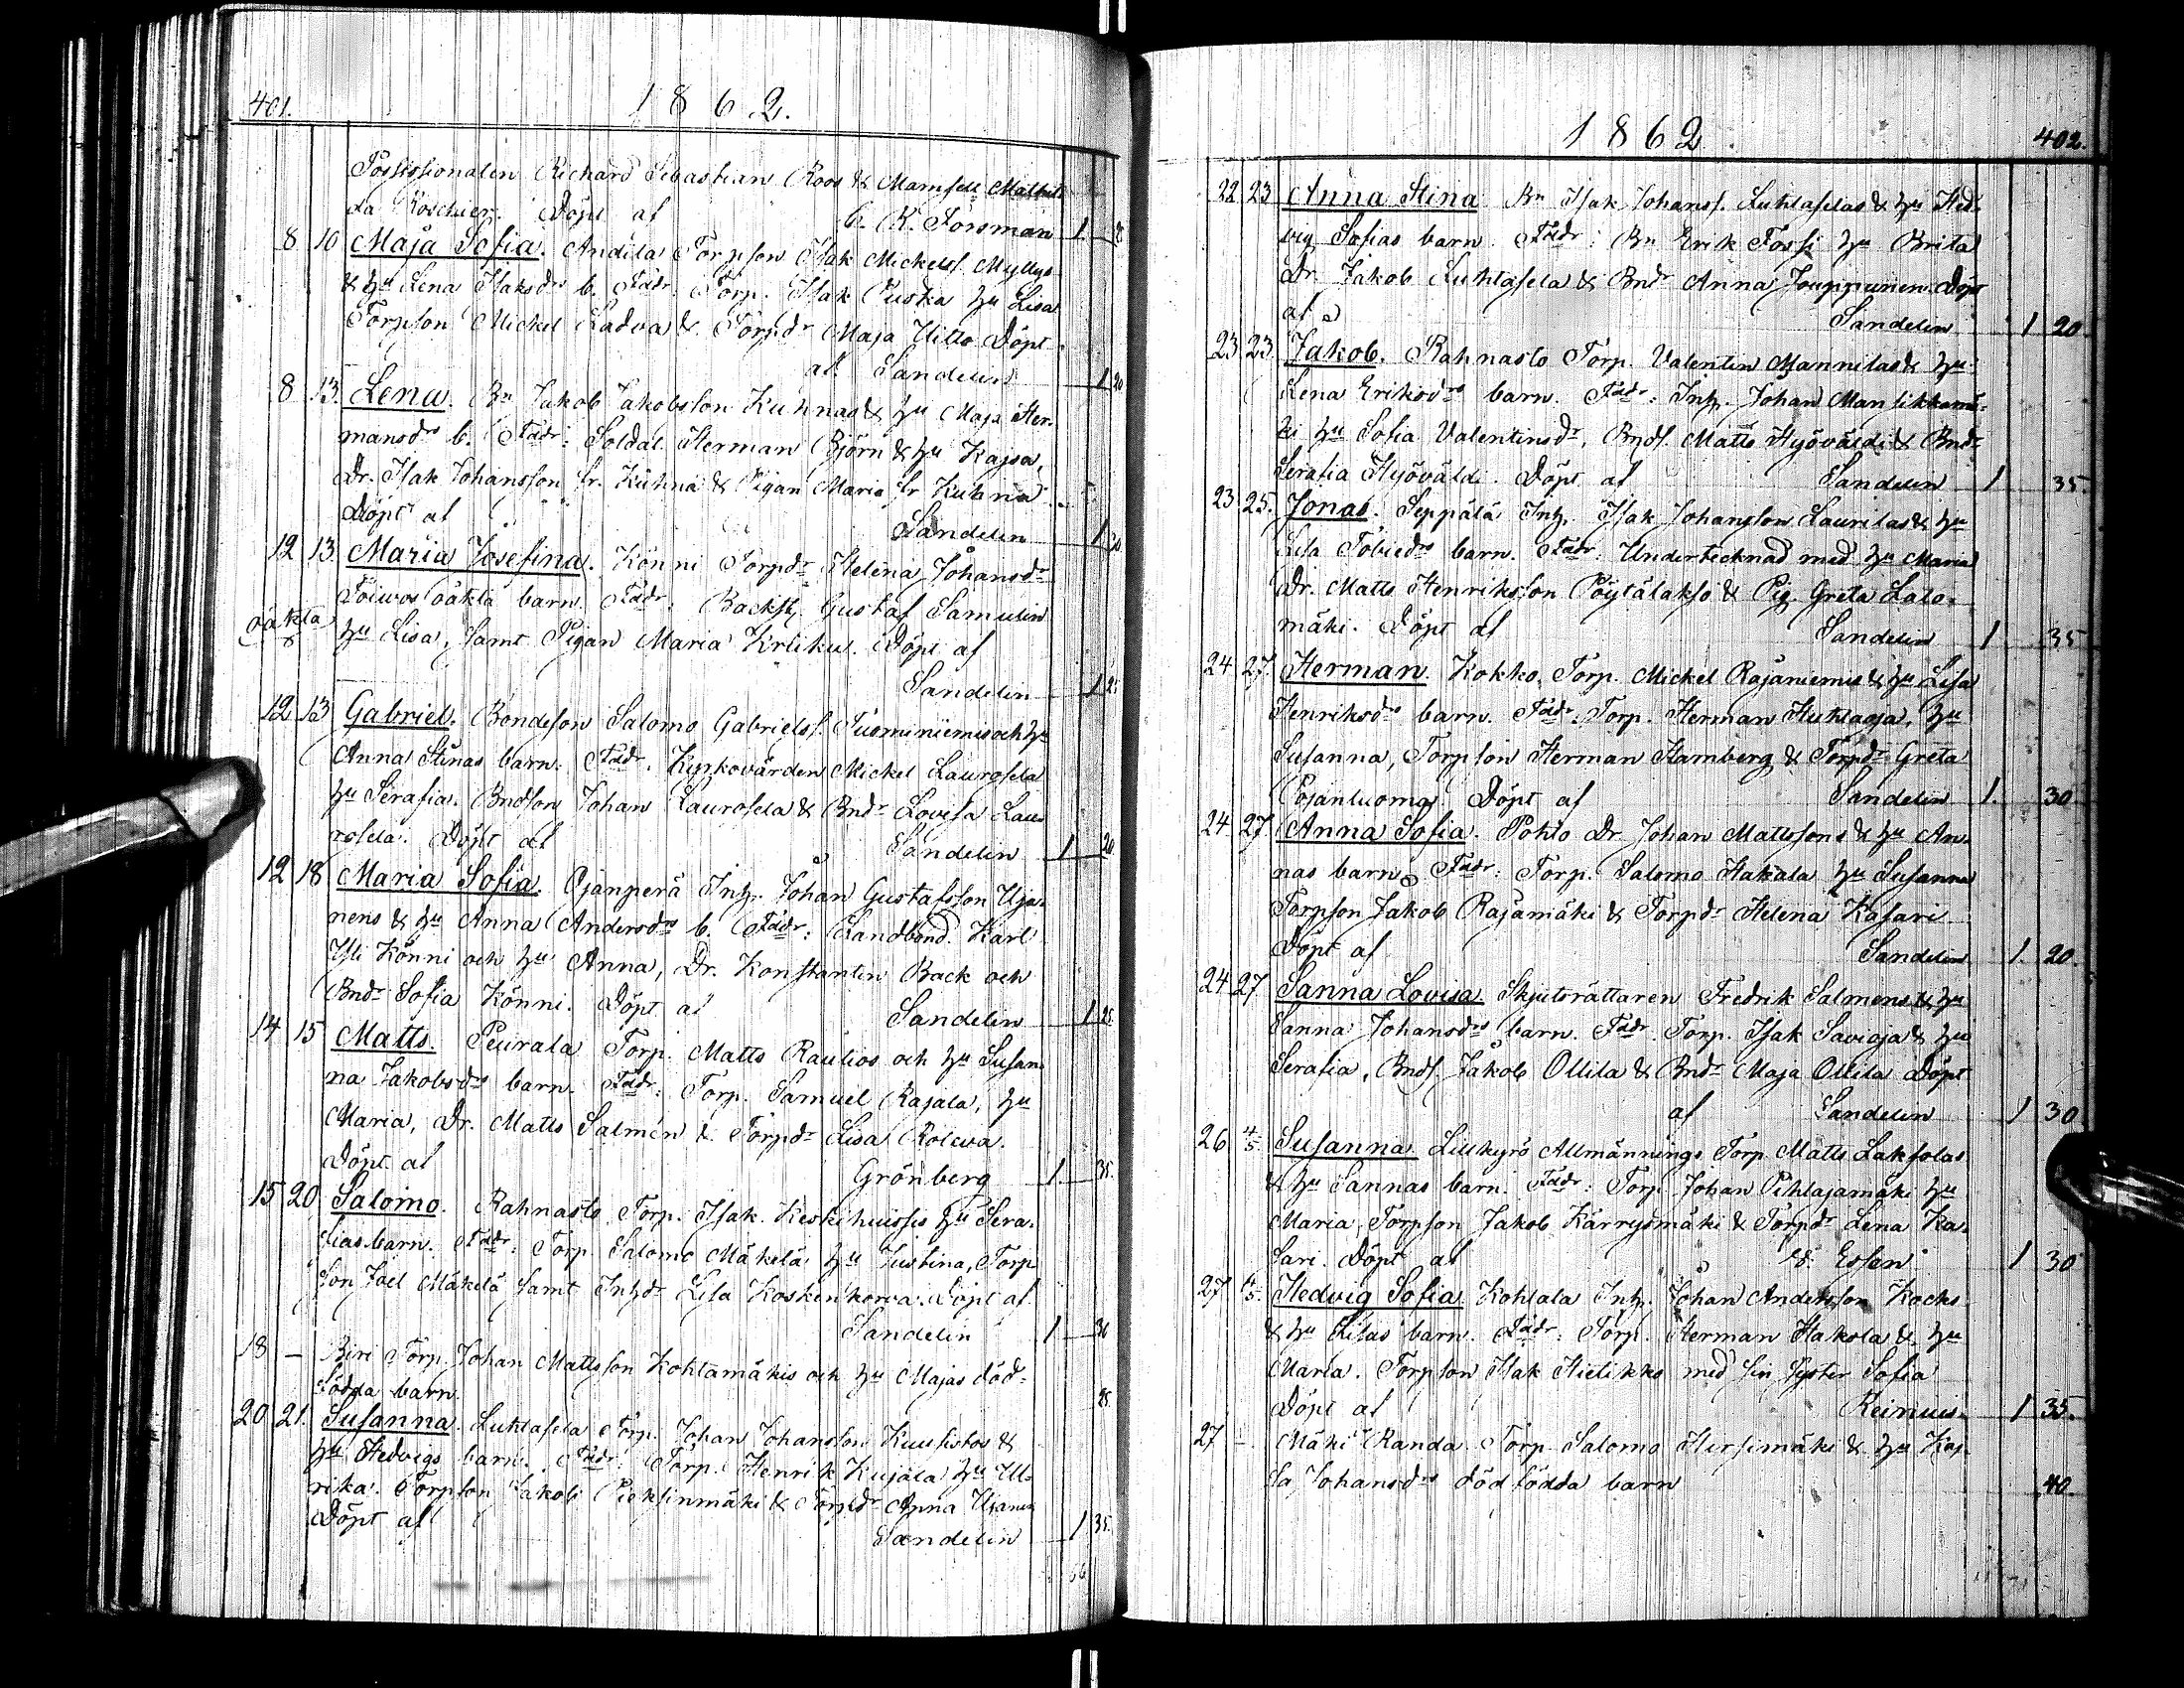 401.
1862.
Possessionaten Richard Sebastian Roos & Mamsell Mathil-
da Roschier. Döpt af C. K. Forsman 1.
8 10 Maja Sofia. Andila Torpson Isak Mickelss. Myllys
& hu Lena Isaksdrs b. Fadr. Torp. Isak Puska hu Lisa
Torpson Mickel Ladva & Torpdr Maja Uitto Döpt
af Sandelin 1 20
8 13. Lena. Bn Jakob Jakobsson Kuhnas & hu Maja Her-
mansdrs b. Fadr: Soldat. Herman Björn & hu Kajsa,
Dr. Isak Johansson fr. Kuhna & Pigan Maria fr Kuhna
Döpt af Sandelin 1 30
12 13 Maria Josefina. Könni Torpdr Helena Johansdr
Toiwos oäkta barn. Fadr. Backst. Gustaf Samulin
oäkta
hu Lisa, samt Pigan Maria Krliku. Döpt af
Sandelin 1 25
12 13 Gabriel. Bondeson Salomo Gabrielss. Tuominiemis och hu
Anna Stinas barn. Fadr. Kyrkovärden Mickel Laurosela
hu Serafia. Bndson Johan Laurosela & Bndr Lovisa Lau-
rosela. Döpt af Sandelin 1 20
12 18 Maria Sofia. Ojanperä Inh. Johan Gustafsson Uja-
nens & hu Anna Andersdrs b. Fadr: Landbond. Karl
Yli Könni och hu Anna, Dr. Konstantin Back och
Bndr Sofia Könni. Döpt af Sandelin 1 25
14 15 Matts. Peurala Torp. Matts Rautios och hu Susan-
na Jakobsdrs barn. Fadr: Torp. Samuel Rajala, hu
Maria, Dr. Matts Salmén & Torpdr Lisa Rolewa.
Döpt af Grönberg 1. 35.
15 20 Salomo. Rahnasto Torp. Isak Keskihuissis hu Sera-
fias barn. Fadr: Torp. Salomo Mäkelä hu Justina, Torp
son Joel Mäkelä samt Inhdr Lisa Koskenkorva. Döpt af
Sandelin 1 30
18 — Biri Torp. Johan Mattsson Kohtamäkis och hu Majas död-
födda barn. 25.
20 21. Susanna. Luhtasela Torp. Johan Johansson Kuusistos &
hu Hedvigs barn. Fadr: Torp. Henrik Kujala hu Ul-
rika. Torpson Jakob Pieksinmäki & Torpdr Anna Ujanen
Döpt af Sandelin 1 35.
1862
402.
22 23 Anna Stina Bn Isak Johanss. Luhtaselas & hu Hed-
vig Sofias barn. Fadr: Bn Erik Forssi hu Brita
Dr. Jakob Luhtasela & Bndr Anna Jouppunen. Döpt
af Sandelin 1 20
23 23. Jakob. Rahnasto Torp. Valentin Mannilas & hu
Lena Eriksdrs barn. Fadr: Inh. Johan Mansikkamä-
ki hu Sofia Valentinsdr, Bnds. Matts Hyöväldi & Bndr
Serafia Hyöväldi. Döpt af Sandelin 1 35.
23 25. Jonas. Seppälä Inh. Isak Johansson Laurilas & hu
Lisa Tobiedrs barn. Fadr: Undertecknad med hu Maria
Dr. Matts Henriksson Pöytälakso & Pig. Greta Lalo-
mäki. Döpt af Sandelin 1 35
24 27. Herman. Kokko Torp. Mickel Rajaniemis & hu Lisa
Henriksdrs barn. Fadr: Torp. Herman Huhtaoja, hu
Susanna, Torpson Herman Hamberg & Torpdr Greta
Pojanluoma. Döpt af Sandelin 1. 30
24 27. Anna Sofia. Pohto Dr. Johan Mattssons & hu An-
nas barn. Fadr: Torp. Salomo Hakala hu Susanna
Torpson Jakob Rajamäki & Torpdr Helena Kasari
Döpt af Sandelin 1 20.
24 27 Sanna Lovisa. Skjutsrättaren Fredrik Salmens & hu
Sanna Johansdrs barn. Fadr. Torp. Isak Savioja & hu
Serafia, Bnds. Jakob Ollila & Bndr Maja Ollila Döpt
af Sandelin 1 30
26 4/5 Susanna. Lillkyrö Allmännings Torp. Matts Laksolas
& hu Sannas barn. Fadr: Torp Johan Pihlajamäki hu
Maria, Torpson Jakob Kärrysmäki & Torpdr Lena Ka-
sari. Döpt af v. Essen 1 30
27 4/5 Hedvig Sofia. Kohtala Inh. Johan Andersson Kocks
& hu Lisas barn. Fadr: Torp. Herman Hakola & hu
Maria. Torpson Isak Hielikko med sin syster Sofia
Döpt af Reinius 1 35.
27 — Mäki Randa Torp Salomo Hirsimäki & hu Kaj-
sa Johansdrs död födda barn 40.